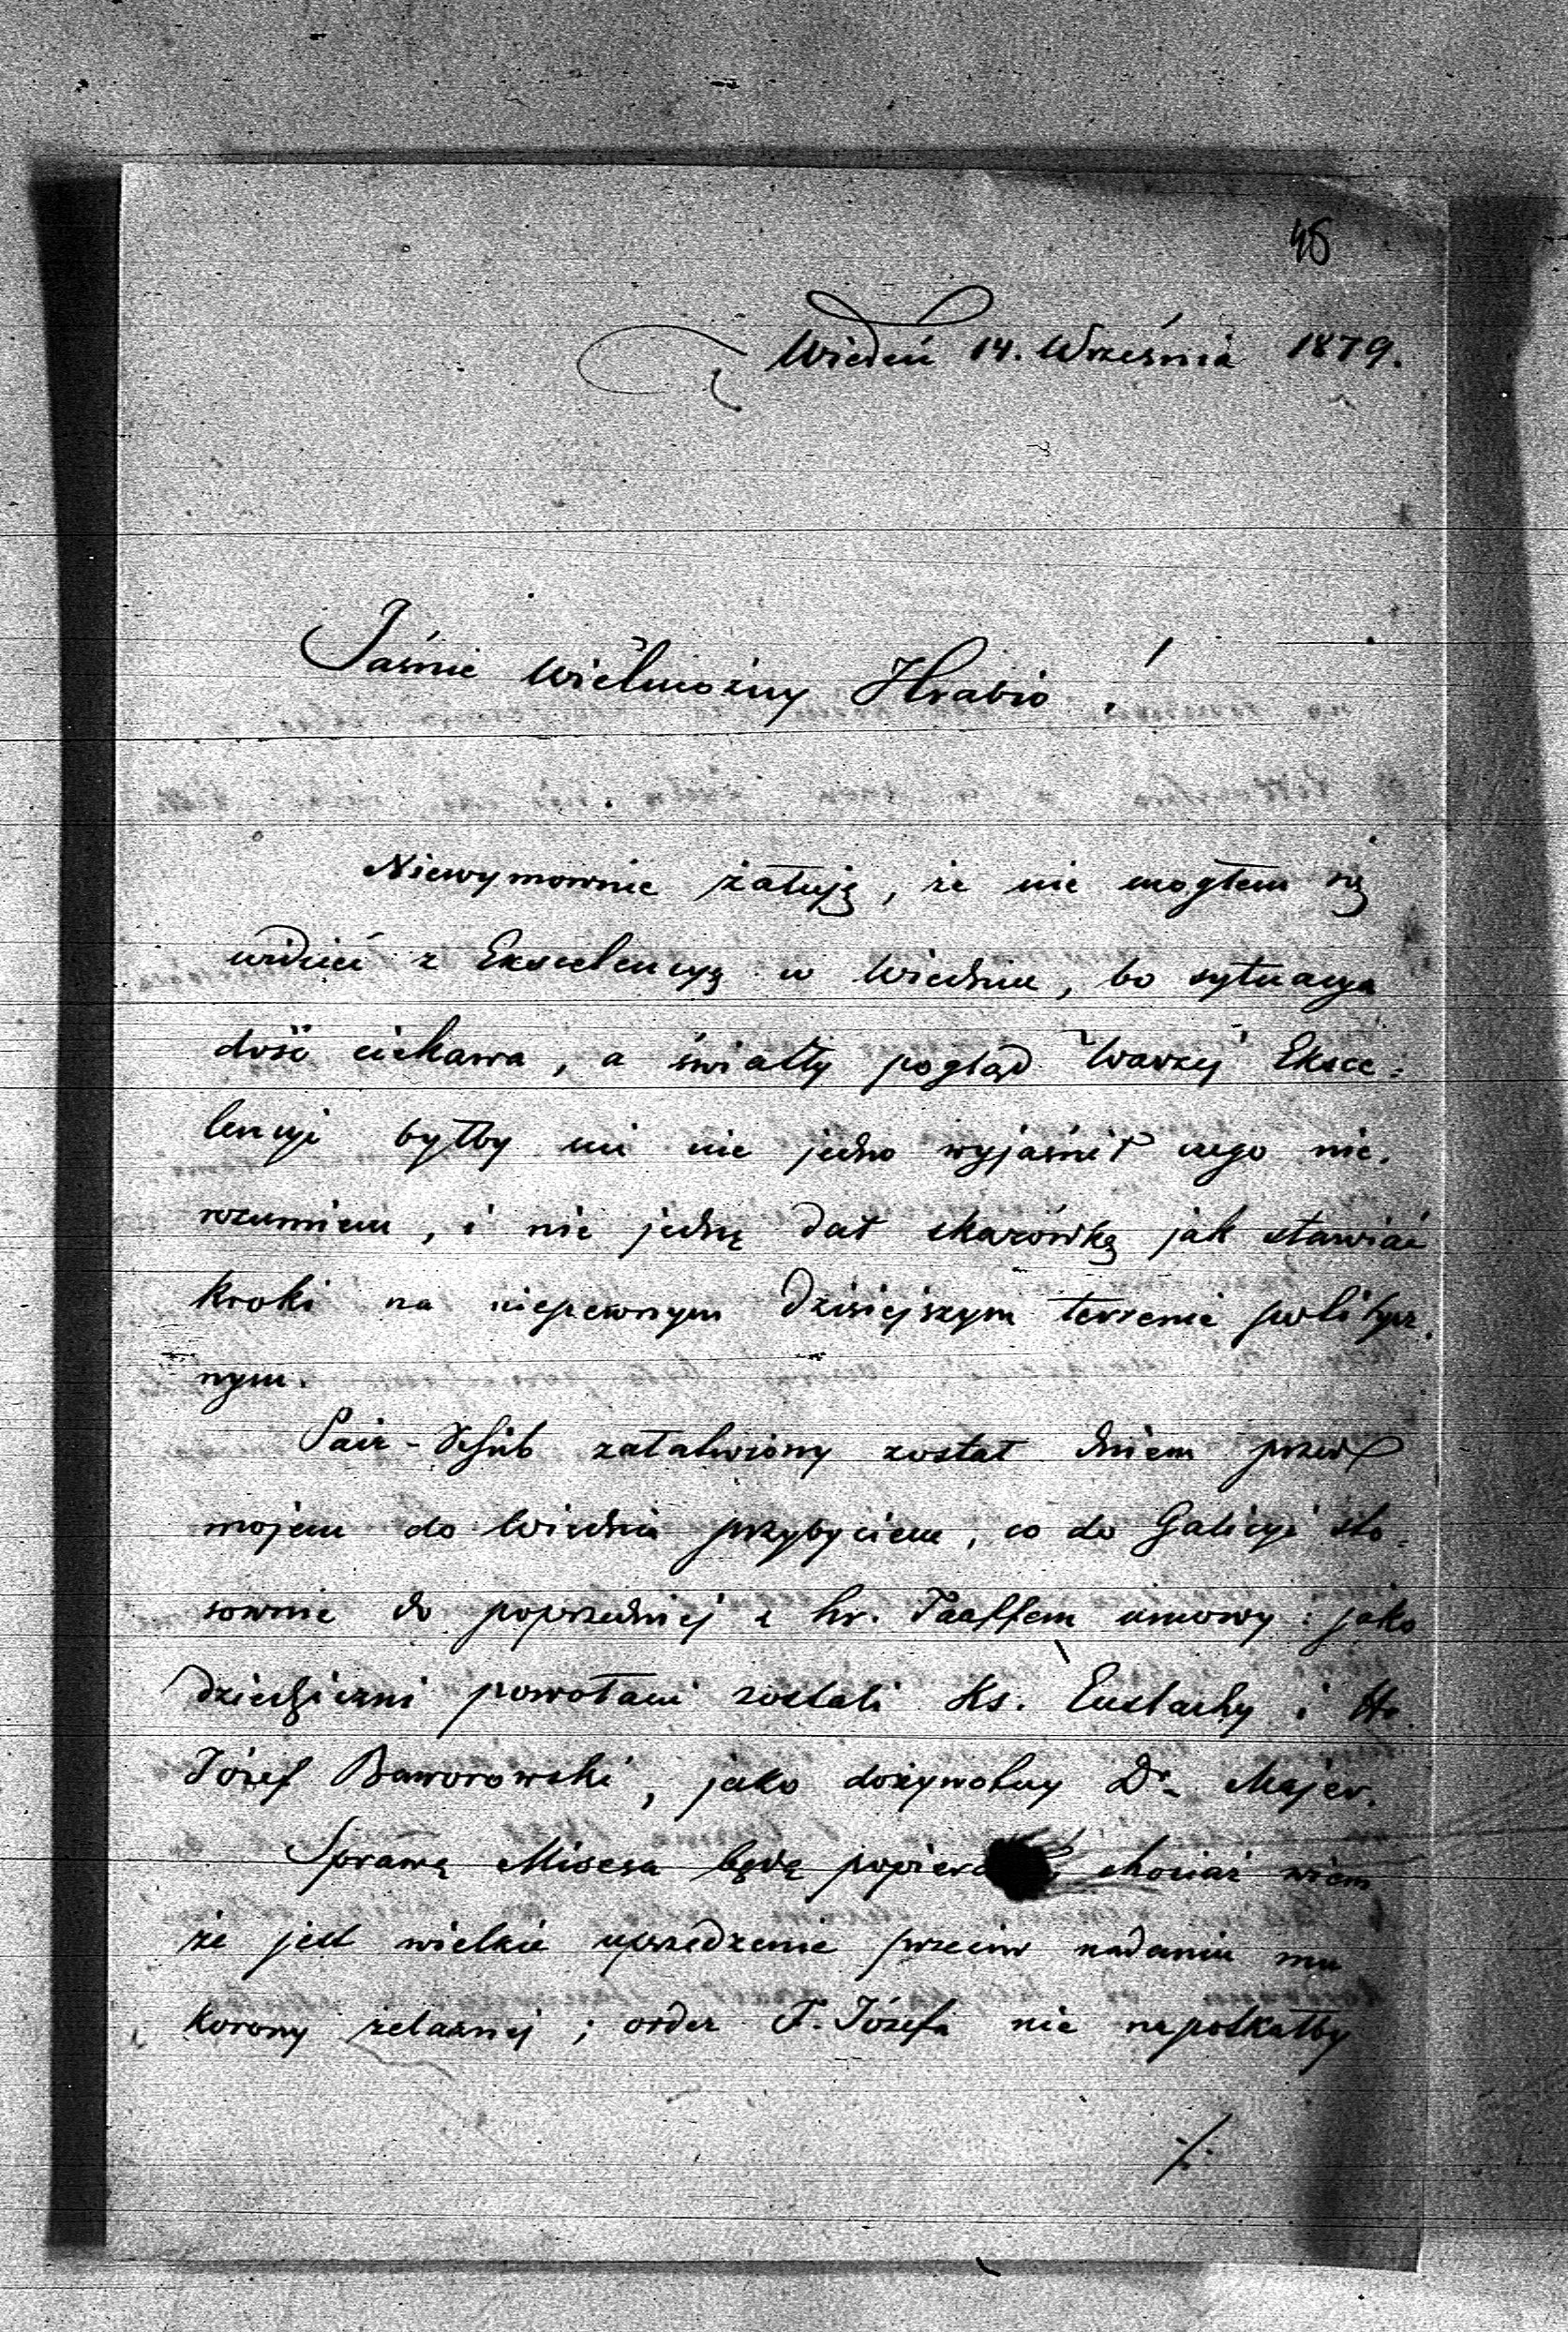 45
Wiedeń 14. Września 1879.
Jaśnie Wielmożny Hrabio !
Niewymownie żałuję, że nie mogłem się
widzieć z Ekscelencyą w Wiedniu, bo sytuacya
dość ciekawa, a światły pogląd Waszej Eksce-
lencyi byłby mi nie jedno wyjaśnił czego nie
rozumiem, i nie jedną dał skazówkę jak stawiać
kroki na niepewnym dzisiejszym terrenie politycz-
nym.
Pair-Schub załatwiony został dniem przed
mojem do Wiednia przybyciem, co do Galicyi sto-
sownie do poprzedniej z hr. Taaffem umowy: jako
dziedziczni powołani zostali Ks. Eustachy i Hr.
Józef Baworowski, jako dożywotny Dr. Majer.
Sprawę Misesa będę chociaż wiem
że jest wielkie uprzedzenie przeciw nadaniu mu
korony żelaznej ; order F. Józefa nie napotkałby
./.